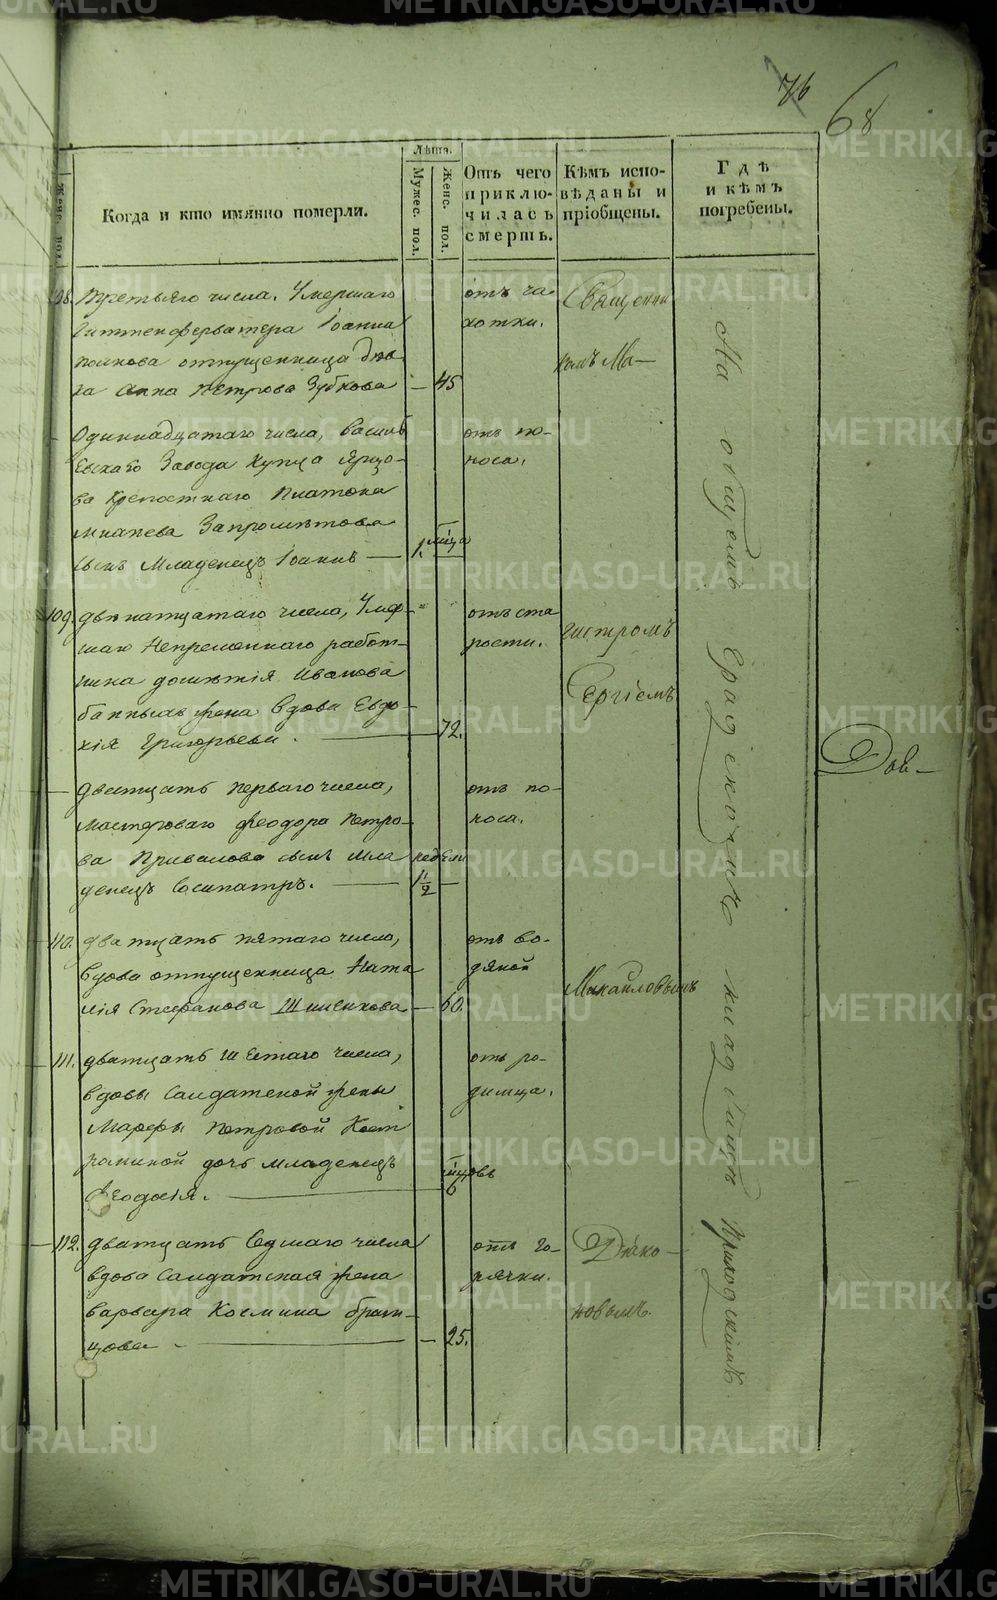 METRIKI.GASO-URAL.RU
76
68
Женс. пол.
Когда и кто имянно померли.
Лѣта.
Мужес. пол.
Женс. пол.
Отъ чего приклю-
чилась смерть.
Кѣмъ испо-
вѣданы и
пріобщены.
Гдѣ
и кѣмъ
погребены.
108. третьяго числа, Умершаго
Гиттенфервалтера Іоанна
отпущенница дѣв-
ка Анна Петрова Зубкова — 45
отъ ча-
хотки.
Священни
комъ Ма—
— Одиннадцатаго числа, Василь
Евскаго Завода Купца Ярцо-
ва Крепостнаго Платона
Запрометова
сынъ Младенецъ Іоаннъ — 1. мѣца —
отъ по-
носа.
109. двѣнатцатаго числа, Умер-
шаго Непременнаго работ-
ника Ивана
жена вдова Евдо-
кія Григорьева. — 72.
отъ ста
рости.
гистромъ
Сергіемъ
— дватцать перваго числа,
мастероваго Феодора Петро-
ва Привалова сынъ Мла
денецъ Сосипатръ. — недели 1 1/2 —
отъ по-
носа.
110. дватцать пятаго числа,
вдова отпущенница Ната
лія Стефанова — 60.
отъ во-
дяной
Михайловымъ
111. дватцать шестаго числа,
вдовы Салдатской жены
Марфы Петровой Кост
роминой дочь младенецъ
Феодосія. — 6
отъ ро-
димца.
112. дватцать Седмаго числа
вдова Салдатская жена
варвара Космина
цова — 25.
отъ го-
рячки.
Діако-
новымъ.
На общемъ Градскомъ кладбищѣ Приходскимъ
Дов—